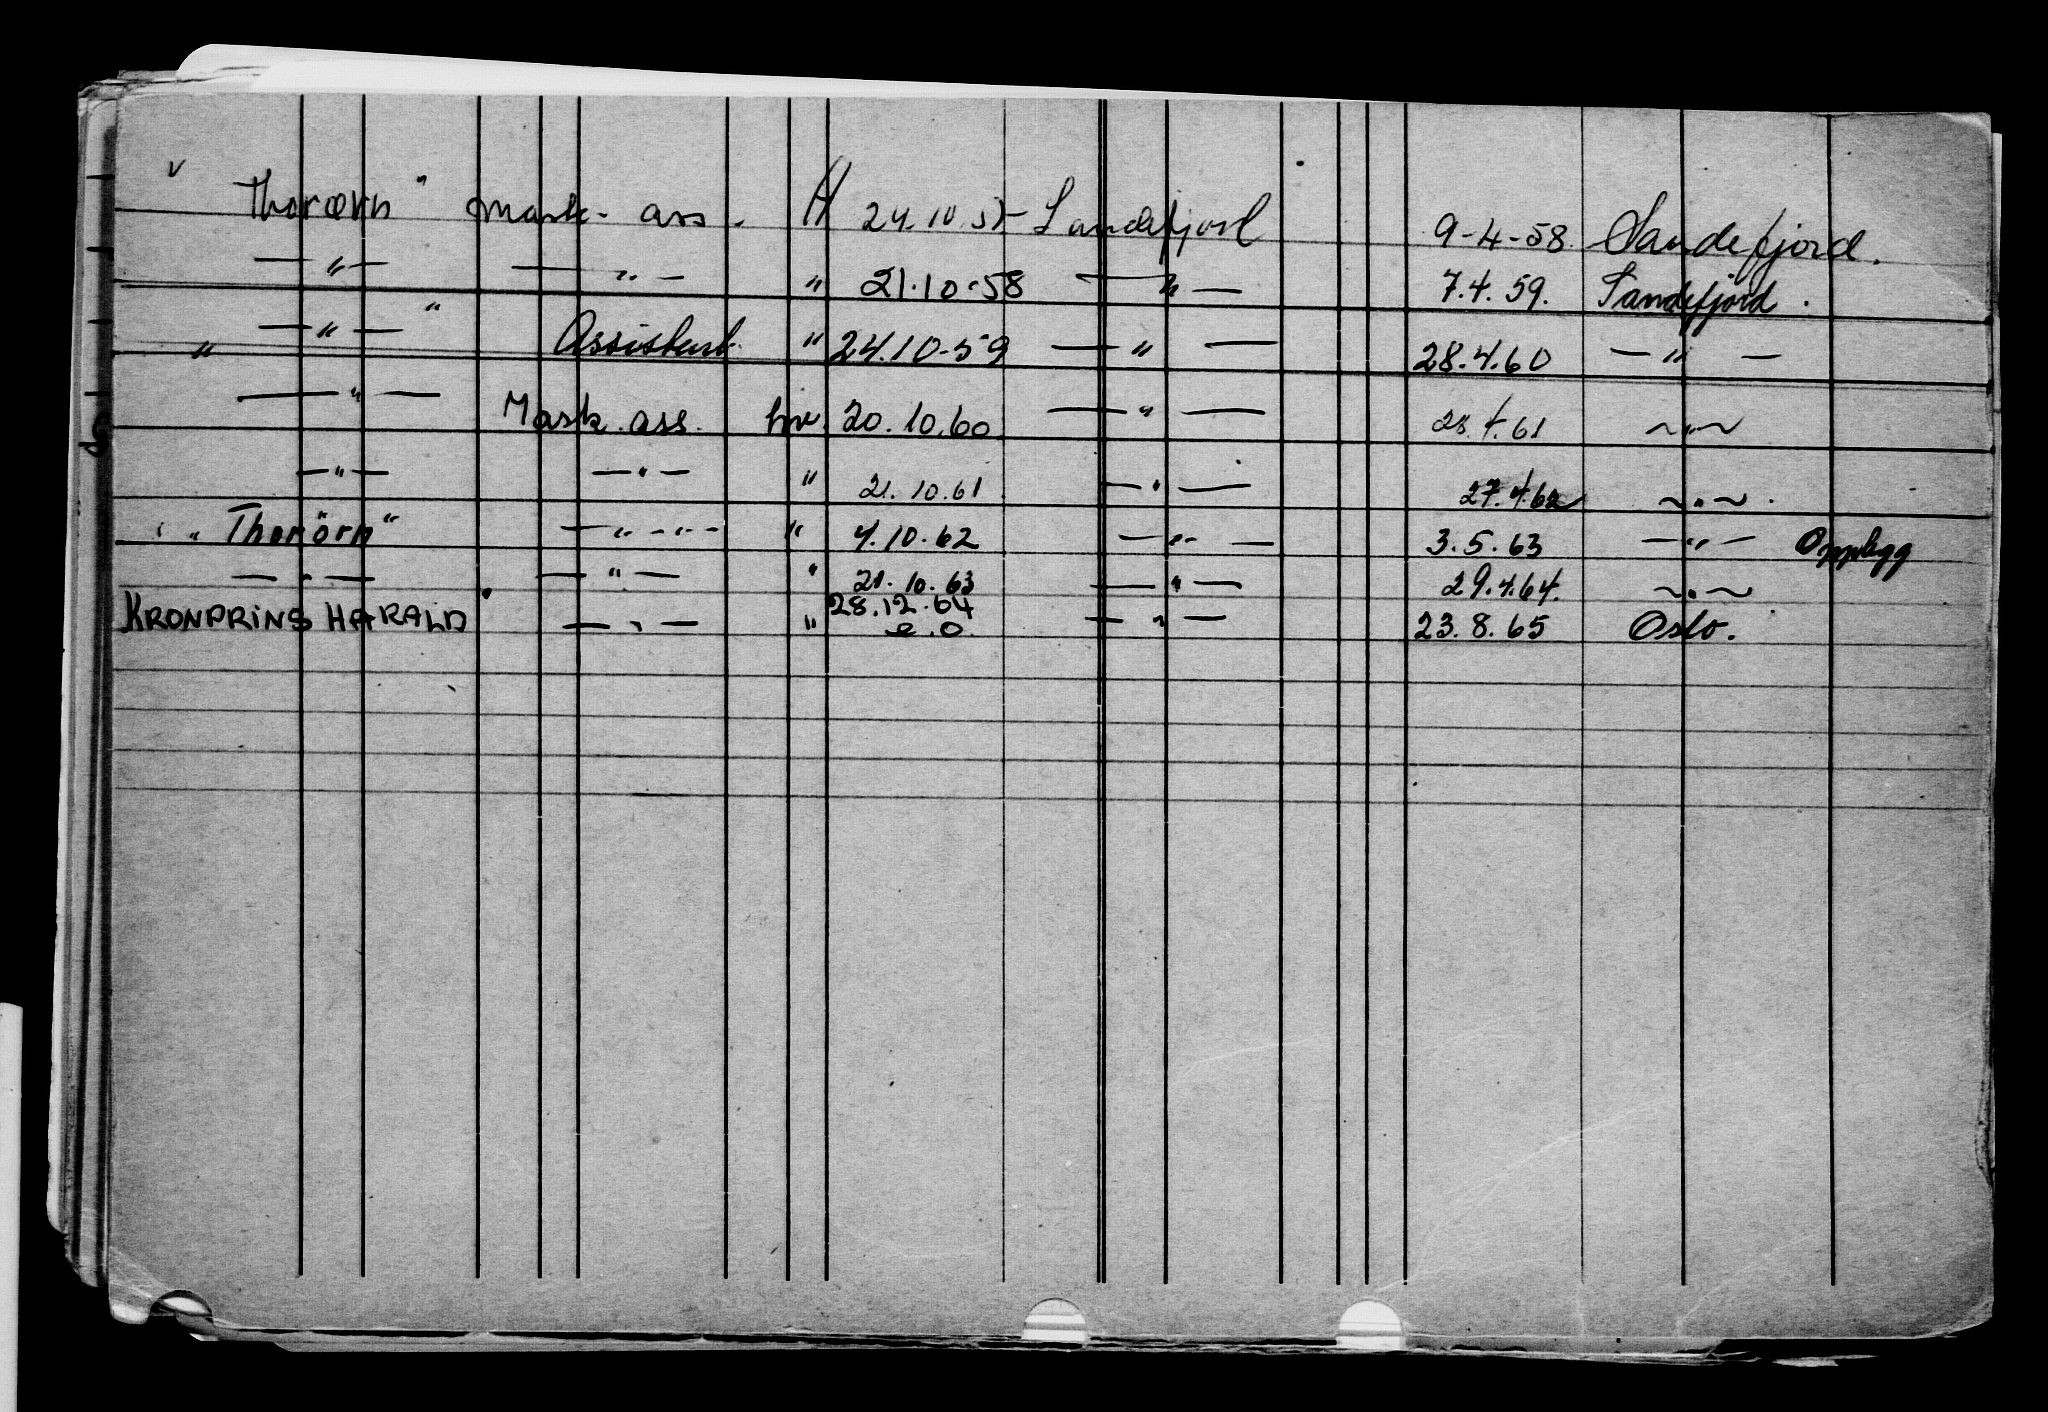 " Thorørn " mask. ass. H 24.10.57 Sandefjord 9-4-58 Sandefjord.
— " — — " — " 21.10.58 — " — 7.4.59. Sandefjord.
" — " — " Assistent " 24.10.59 — " — 28.4.60 — " —
— " — Mask. ass. hv. 20.10.60 — " — 28.4.61 — " —
— " — — " — " 21.10.61 — " — 27.4.62 — " —
" Thorörn " — " — " — " 4.10.62 — " — 3.5.63 — " — Opplegg
— " — — " — " 21.10.63 — " — 29.4.64. — " —
KRONPRINS HARALD — " — " 28.12.64 e.o. — " — 23.8.65 Oslo.